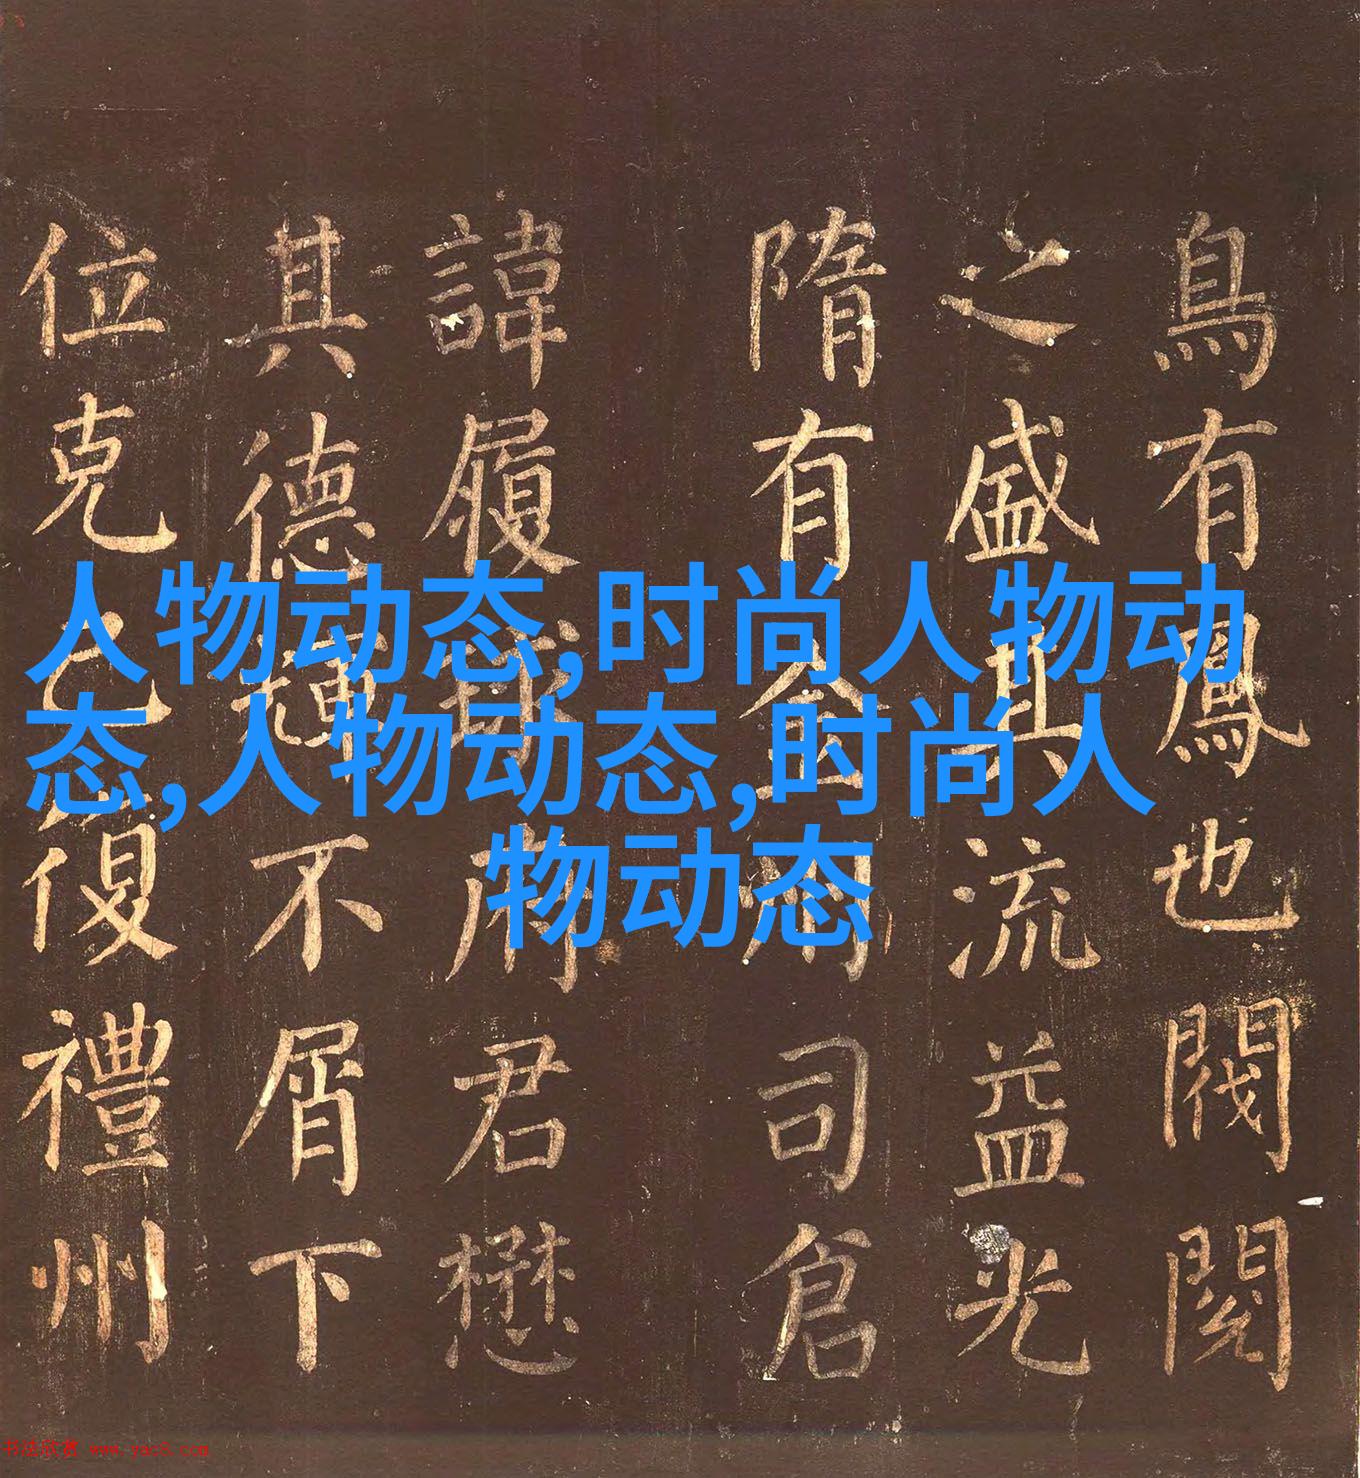 人物动态,时尚人物动
态,人物动态,时尚人
物动态
鳥有鳳也閥閱
之盛其流益光
隋有金司倉
諱履府君懋
其德輝不屑下
位克己復禮州
书法欣赏 www.yac8.com